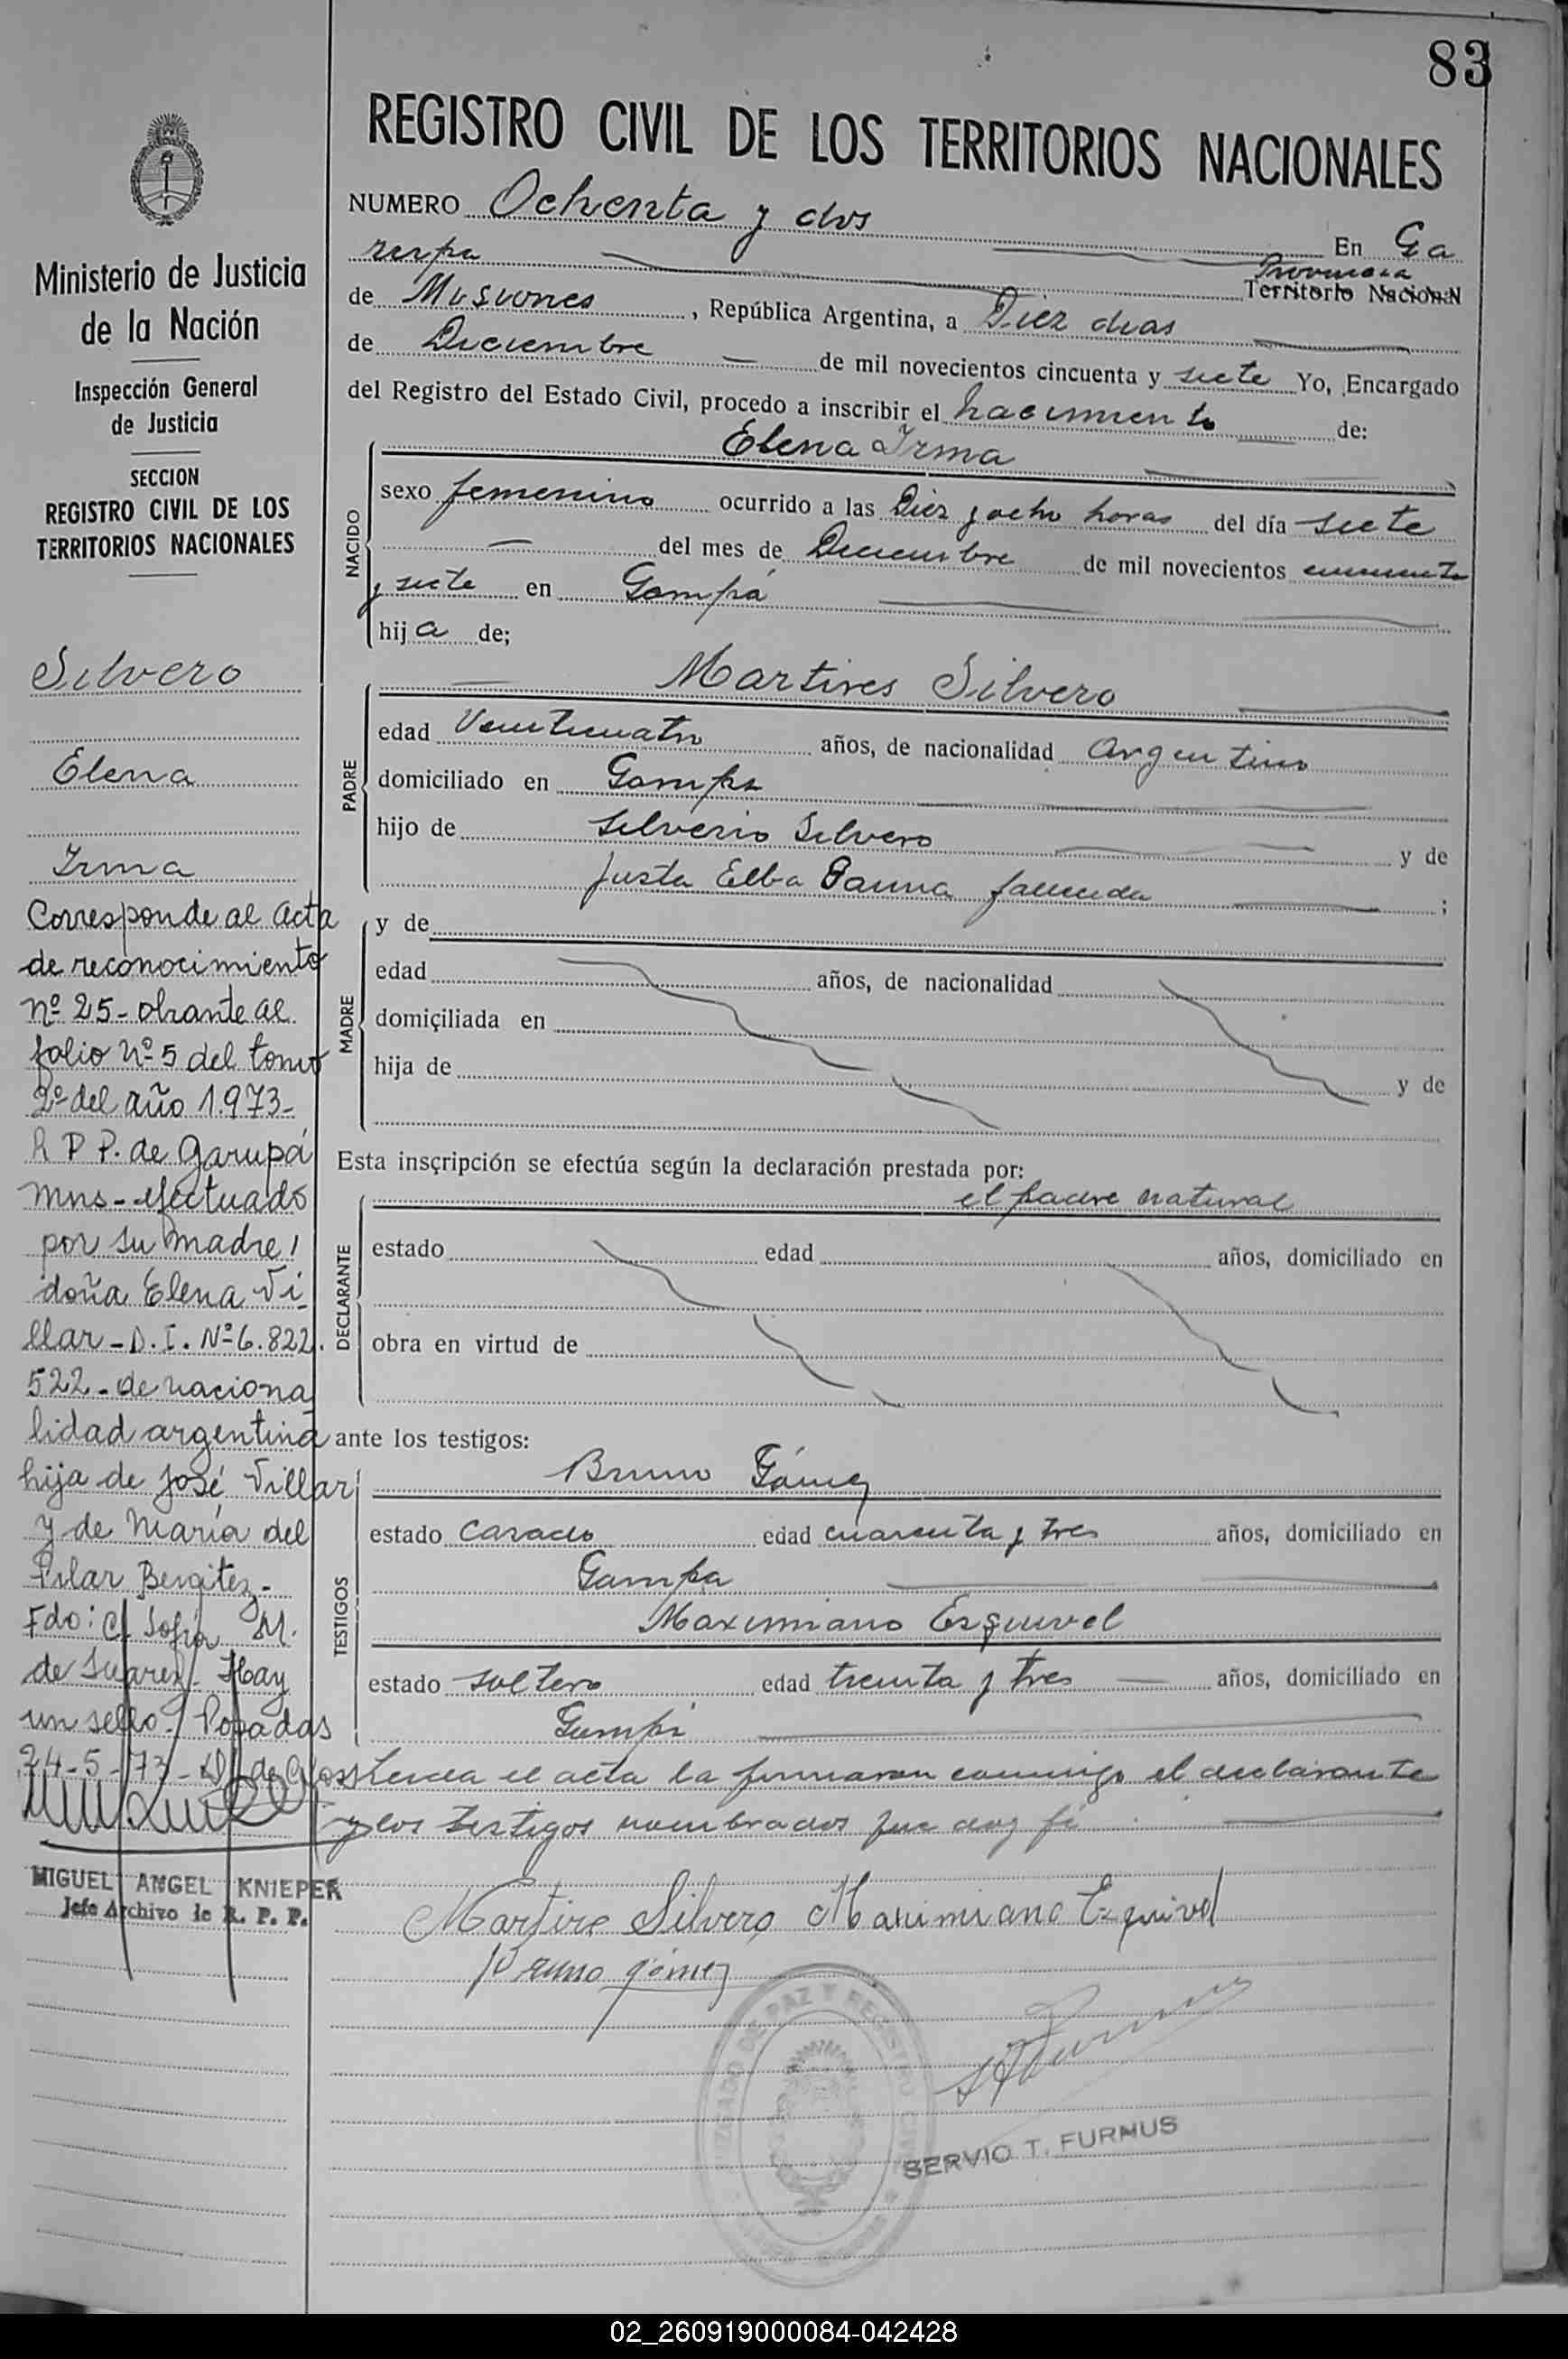 83
REGISTRO CIVIL DE LOS TERRITORIOS NACIONALES
NUMERO Ochenta y dos En Ga
rupa Provincia
Territorio Nacional
de Misiones, República Argentina, a Diez dias
de Diciembre de mil novecientos cincuenta y siete Yo, Encargado
del Registro del Estado Civil, procedo a inscribir el nacimiento de:
Elena Irma
NACIDO
sexo femenino ocurrido a las Diez y ocho horas del día siete
del mes de Diciembre de mil novecientos cincuenta
y siete en Garupá
hija de;
PADRE
Martires Silvero
edad Veinticuatro años, de nacionalidad argentino
domiciliado en Garupa
hijo de Silverio Silvero y de
Justa Elba fallecida ;
MADRE
y de
edad años, de nacionalidad
domiciliada en
hija de y de
Esta inscripción se efectúa según la declaración prestada por:
el padre natural
DECLARANTE
estado edad años, domiciliado en
obra en virtud de
ante los testigos:
TESTIGOS
Bruno Gómez
estado casado edad cuarenta y tres años, domiciliado en
Garupa
Maximiano Esquivel
estado soltero edad treinta y tres años, domiciliado en
Garupá
Leida el acta la firmaron conmigo el declarante
y los testigos nombrados que doy fé
Martires Silvero Maximiano Ezquivel
Bruno gómez
JUZGADO DE PAZ Y REGISTRO
SERVIO T. FURNUS
Ministerio de Justicia
de la Nación
Inspección General
de Justicia
SECCION
REGISTRO CIVIL DE LOS
TERRITORIOS NACIONALES
Silvero
Elena
Irma
Corresponde al Acta
de reconocimiento
nº 25 - obrante al
folio Nº 5 del tomo
2º del año 1.973-
R P P. de Garupá
mns - efectuado
por su madre!
doña Elena Vi-
llar - D. I. Nº 6.822.
522 - de naciona
lidad argentina
hija de José Villar
y de María del
Pilar Benitez -
Fdo: C/ Sofía M.
de Suarez - Hay
un sello - Posadas
24-5-73-
MIGUEL ANGEL KNIEPER
Jefe Archivo de R. P. P.
02_260919000084-042428